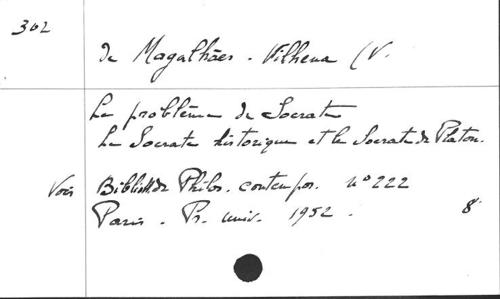 302
de Magalhães - Vilhena (V.
Le problème de Socrate
Le Socrate historique et le Socrate de Platon.
Voir Biblioth de Philos. contempor. n° 222
Paris - Pr. univ. 1952. 8°